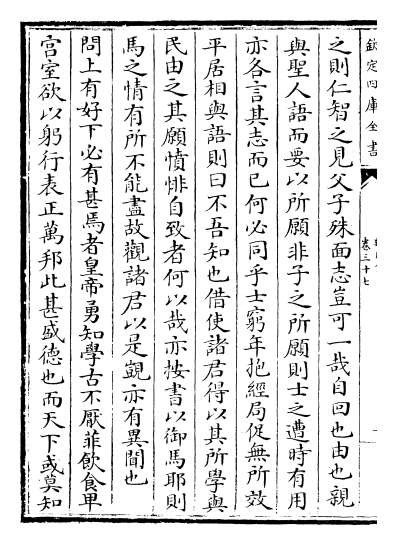 欽定四庫全書
卷三十七
之則仁智之見父子殊面志豈可一哉自回也由也親
與聖人語而要以所願非子之所願則士之遭時有用
亦各言其志而已何必同乎士窮年抱經局促無所效
平居相與語則曰不吾知也借使諸君得以其所學與
民由之其願憤悱自致者何以哉亦按書以御馬耶則
馬之情有所不能盡故觀諸君以是覬亦有異聞也
問上有好下必有甚焉者皇帝勇知學古不厭菲飲食卑
宫室欲以躬行表正萬邦此甚盛德也而天下或莫知